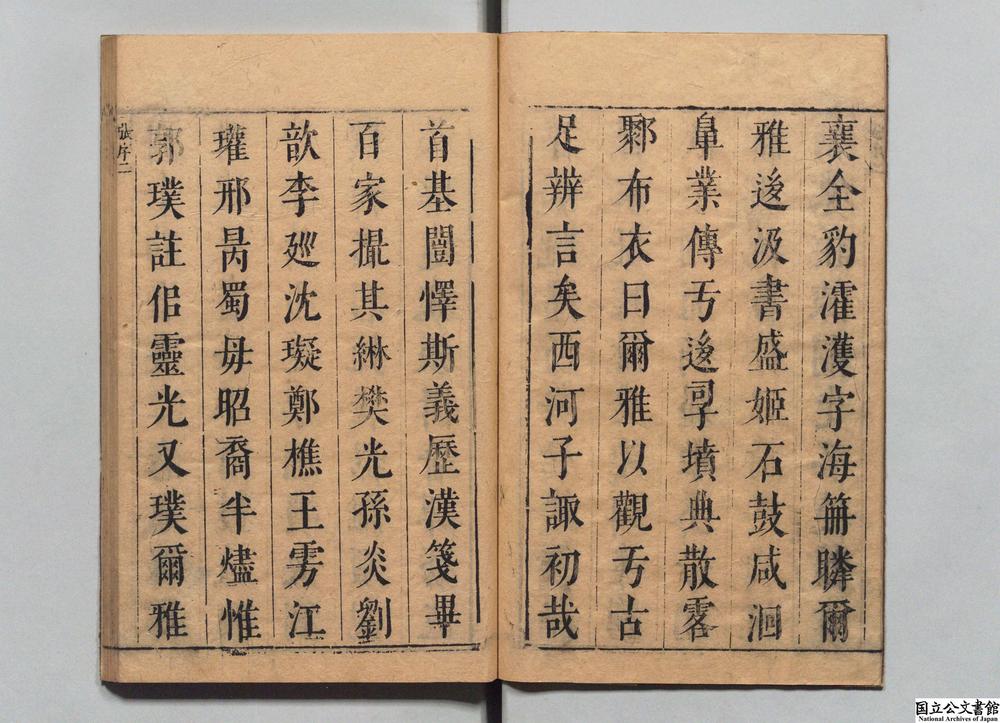 襄全豹濩濩字海笧瞵爾
雅逡汲書盛姬石鼓咸洄
皐業傳亐逡孠墳典散畧
鄹布衣曰爾雅以觀亐古
足辨言矣西河子諏初哉
首基闓懌斯義歷漢箋畢
百家撮其綝樊光孫炎劉
歆李廵沈璇鄭樵王雱江
瓘邢昺蜀毋昭裔半燼惟
郭璞註佀靈光又璞爾雅
張序二
国立公文書館
National Archives of Japan